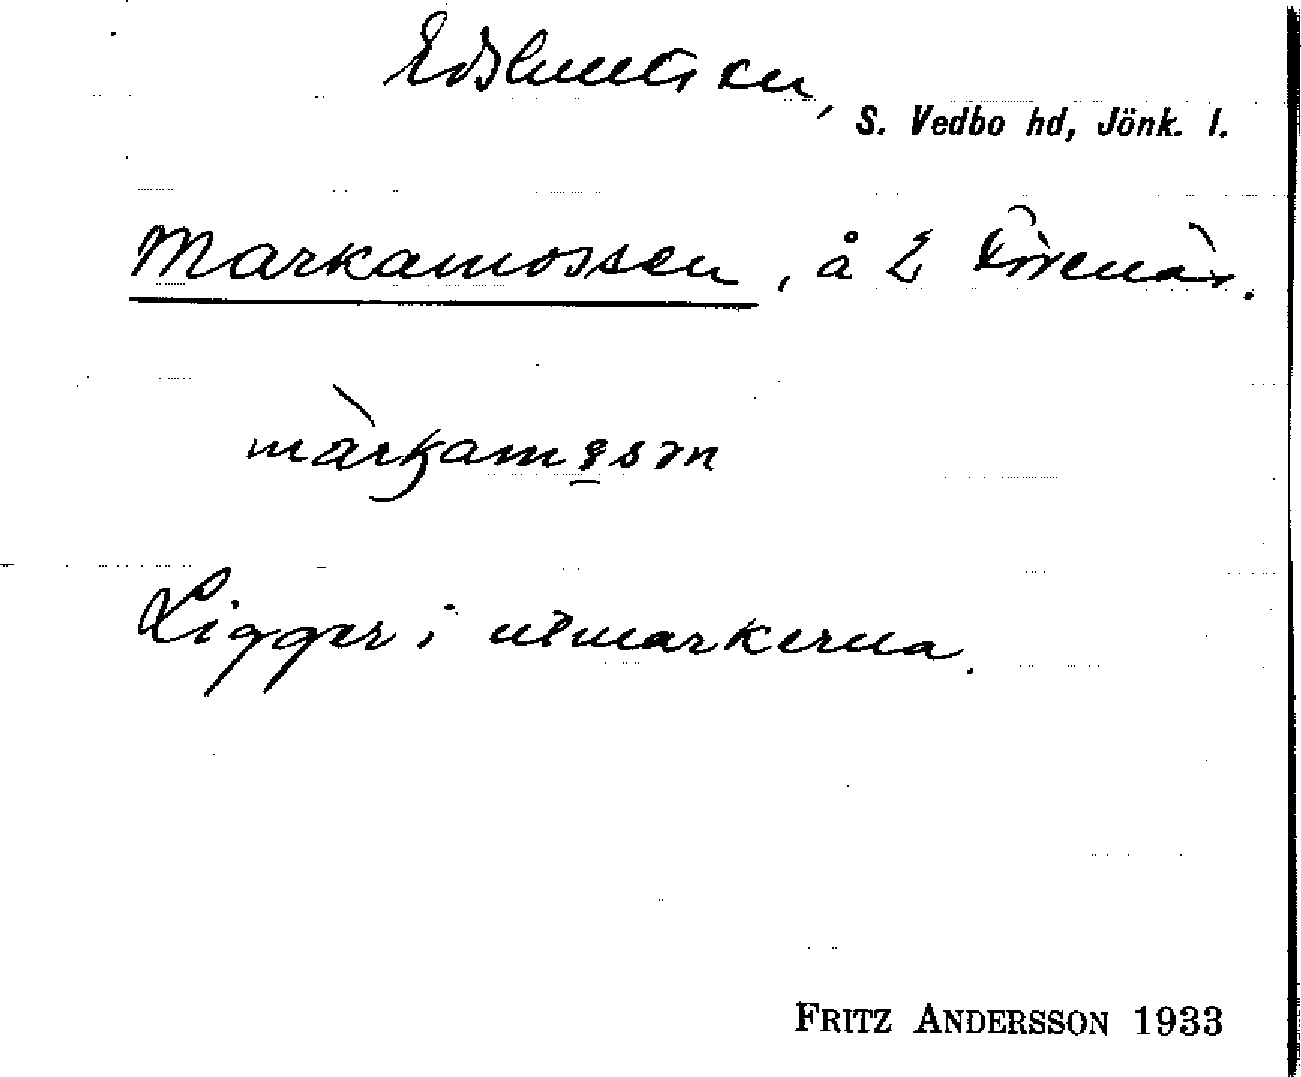 Edshults sn,
S. Vedbo hd, Jönk. l.
Markamossen, å 2
màrkamọsən
Ligger i utmarkerna.
FRITZ ANDERSSON 1933